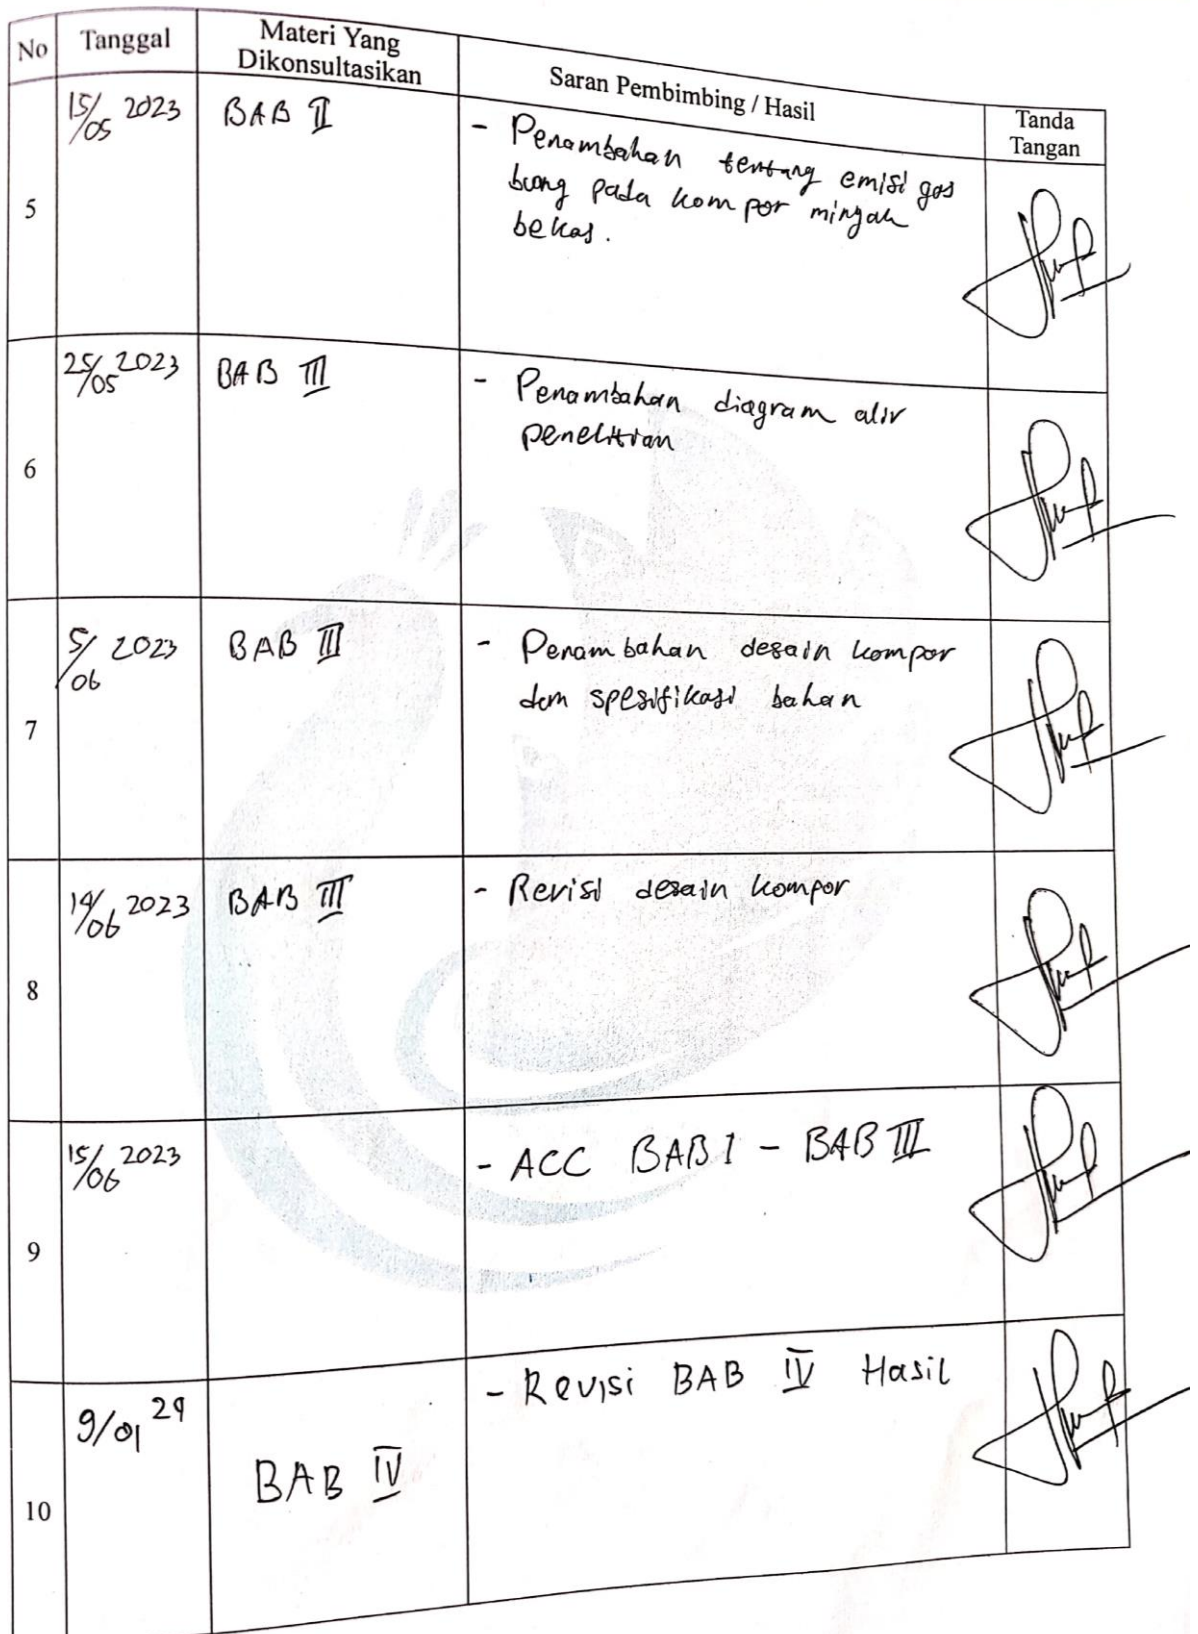 No Tanggal Materi Yang Dikonsultasikan Saran Pembimbing / Hasil Tanda Tangan
5 15/05 2023 BAB II - Penambahan tentang emisi gas
buang pada kompor minyak
bekas.
6 25/05 2023 BAB III - Penambahan diagram alir
penelitian
7 5/06 2023 BAB III - Penambahan desain kompor
dan spesifikasi bahan
8 14/06 2023 BAB III - Revisi desain kompor
9 15/06 2023 - ACC BAB I - BAB III
10 9/01 24 BAB IV - Revisi BAB IV Hasil